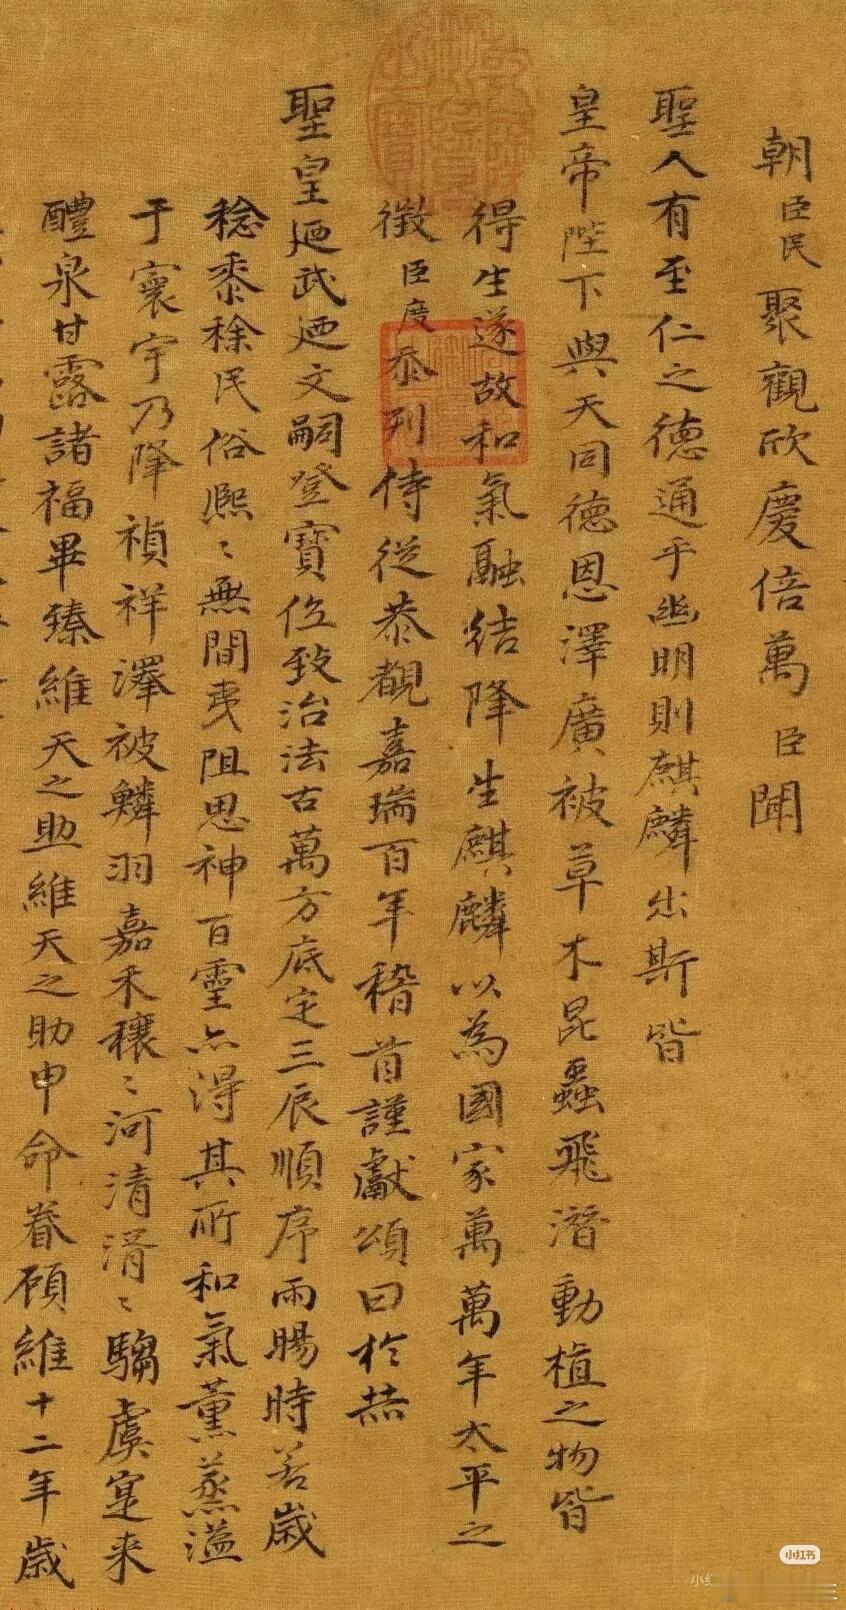 朝臣民聚觀欣慶倍萬臣聞
聖人有至仁之德通乎幽明則麒麟出斯皆
皇帝陛下與天同德恩澤廣被草木昆蟲飛潛動植之物皆
得生遂故和氣融結降生麒麟以為國家萬萬年太平之
徵臣度忝列侍從恭覩嘉瑞百年稽首謹獻頌曰於赫
聖皇廼武廼文嗣登寶位致治法古萬方底定三辰順序雨暘時若歲
稔黍稌民俗熙〻無間夷阻思神百靈亦得其所和氣薰蒸溢
于寰宇乃降禎祥澤被鱗羽嘉禾穰〻河清湑〻騶虞寔来
醴泉甘露諸福畢臻維天之助維天之助申命眷顧維十二年歲
小红书